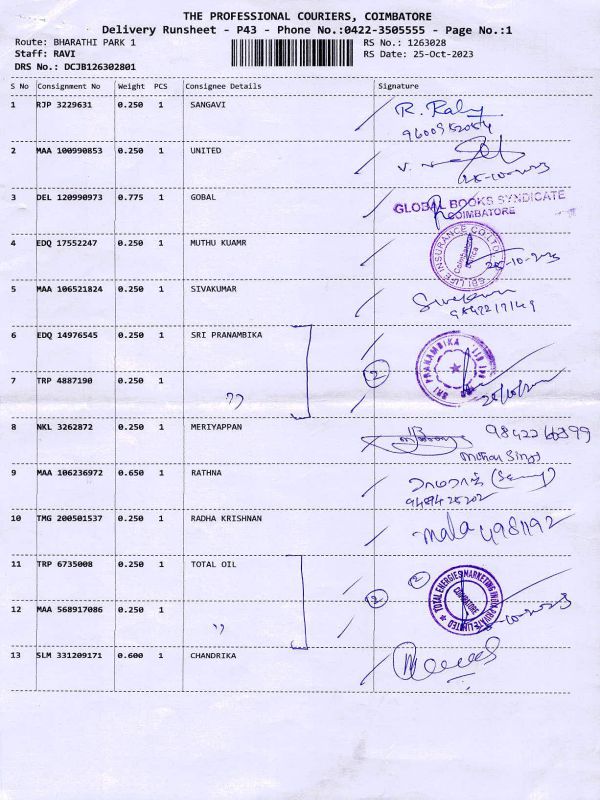 THE PROFESSIONAL COURIERS, COIMBATORE
Delivery Runsheet - P43 - Phone No.:0422-3505555 - Page No.:1
Route: BHARATHI PARK 1 RS No.: 1263028
Staff: RAVI RS Date: 25-Oct-2023
DRS No.: DCJB126302801
S No Consignment No Weight PCS Consignee Details Signature
1 RJP 3229631 0.250 1 SANGAVI
2 MAA 100990853 0.250 1 UNITED
25-10-2023
3 DEL 120990973 0.775 1 GOBAL
GLOBAL BOOKS SYNDICATE
COIMBATORE
4 EDQ 17552247 0.250 1 MUTHU KUAMR
SBI LIFE INSURANCE CO LTD
5 MAA 106521824 0.250 1 SIVAKUMAR
6 EDQ 14976545 0.250 1 SRI PRANAMBIKA
SRI PRANAMBIKA
2
7 TRP 4887190 0.250 1 ,,
8 NKL 3262872 0.250 1 MERIYAPPAN
Mohan Singh
9 MAA 106236972 0.650 1 RATHNA
9484425202
10 TMG 200501537 0.250 1 RADHA KRISHNAN
mala
11 TRP 6735008 0.250 1 TOTAL OIL
2
TOTAL ENERGIES MARKETING INDIA PRIVATE LIMITED
COIMBATORE
2
12 MAA 568917086 0.250 1 ,,
13 SLM 331209171 0.600 1 CHANDRIKA